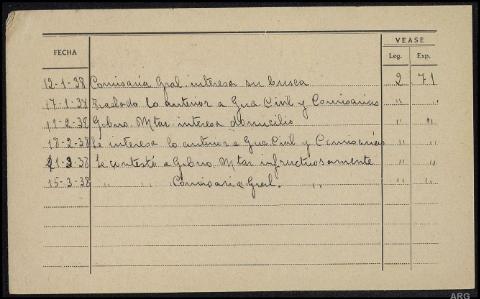 VEASE
FECHA Leg. Exp.
12-1-38 Comisaria Gral interesa su busca 2 71
17-1-38 Traslado lo anterior a Gua Civil y Comisarias " "
12-2-38 Gobno. Mtar interesa domicilio " "
18-2-38 Se interesa lo anterior a Gua Civil y Comisarias " "
21-3-38 Se contesta a Gobno Mtar infructuosamente " "
15-3-38 " " Comisaria Gral. " " "
ARG